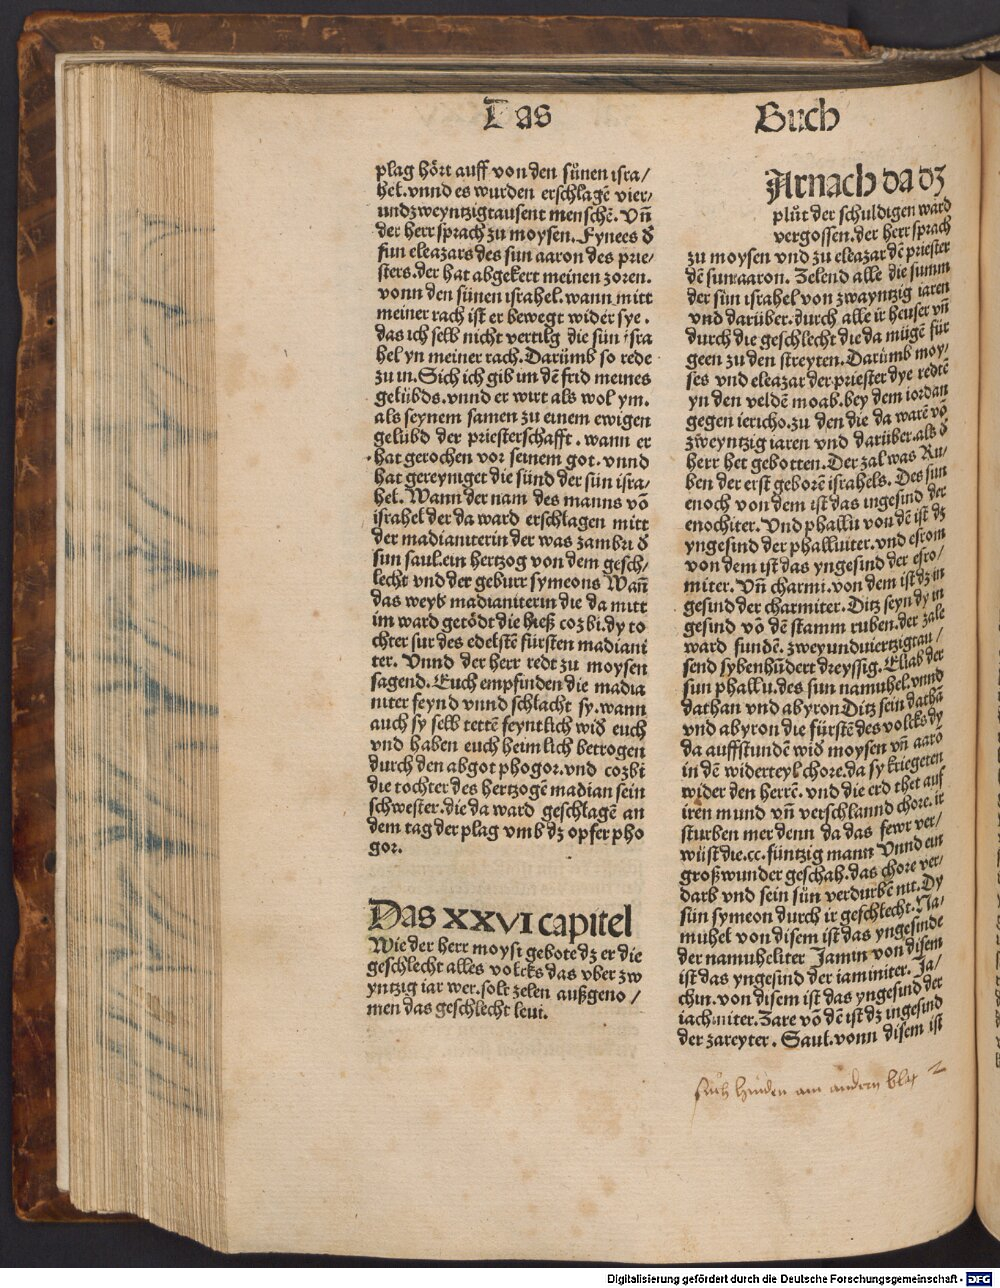 Das
Buch
plag hört auff von den sünen isra/
hel. vnnd es wurden erschlagē vier/
undzweyntzigtausent menschē. Vñ
der herr sprach zu moysen. Fynees d̄
sun eleazars des sun aaron des prie/
sters. der hat abgekert meinen zoren.
vonn den sünen israhel. wann mitt
meiner rach ist er bewegt wider sye.
das ich selb nicht vertilg die sün isra
hel yn meiner rach. Darümb so rede
zu in. Sich ich gib im dē frid meines
gelübds. vnnd er wirt als wol ym.
als seynem samen zu einem ewigen
gelübd der priesterschafft. wann er
hat gerochen vor seinem got. vnnd
hat gereyniget die sünd der sün isra/
hel. Wann der nam des manns vō
israhel der da ward erschlagen mitt
der madianiterin der was zambri d̄
sun saul. ein hertzog von dem gesch/
lecht vnd der geburt symeons Wañ
das weyb madianiterin die da mitt
im ward getödt die hieß cozbi. dy to
chter sur des edelstē fürsten madiani
ter. Vnnd der herr redt zu moysen
sagend. Euch empfinden die madia
niter feynd vnnd schlacht sy. wann
auch sy selb tettē feyntlich wid̄ euch
vnd haben euch heimlich betrogen
durch den abgot phogor. vnd cozbi
die tochter des hertzogē madian sein
schwester. die da ward geschlagē an
dem tag der plag vmb dz opfer pho
gor.
Das XXVI capitel
Wie der herr moysi gebote dz er die
geschlecht alles volcks das vber zw
yntzig iar wer. solt zelen außgeno/
men das geschlecht leui.
Arnach da dz
plůt der schuldigen ward
vergossen. der herr sprach
zu moysen vnd zu eleazar dē priester
dē sun aaron. Zelend alle die summ
der sün israhel von zwayntzig iaren
vnd darüber. durch alle ir heuser vñ
durch die geschlecht die da mügē für
geen zu den streyten. Darümb moy/
ses vnd eleazar der priester dye redtē
yn den veldē moab. bey dem iordan
gegen iericho. zu den die da warē vō
zweyntzig iaren vnd darüber. als d̄
herr het gebotten. Der zal was Ru/
ben der erst geborē israhels. Des sun
enoch von dem ist das ingesind der
enochiter. Vnd phallu von dē ist dz
yngesind der phalluiter. vnd esrom
von dem ist das yngesind der esro/
miter. Vñ charmi. von dem ist dz in
gesind der charmiter. Ditz seyn dy in
gesind vō dē stamm ruben. der zale
ward fundē. zweyunduiertzigtau/
send sybenhūdert dreyssig. Eliab der
sun phallu. des sun namuhel. vnnd
dathan vnd abyron Ditz sein dathā
vnd abyron die fürstē des volcks dy
da auffstundē wid̄ moysen vñ aarō
in dē widerteyl chore. da sy kriegeten
wider den herrē. vnd die erd thet auf
iren mund vñ verschlannd chore. ir
sturben mer denn da das fewr ver/
wüst die. cc. füntzig mann Vnnd ein
groß wunder geschah. das chore ver/
darb vnd sein sün verdurbē nit. Dy
sün symeon durch ir geschlecht. Na/
muhel von disem ist das yngesinde
der namuheliter Jamin von disem
ist das yngesind der iaminiter. Ja/
chin. von disem ist das yngesind der
iachiniter. Zare vō dē ist dz ingesind
der zareyter. Saul. vonn disem ist
sůch hinden am andern blat
Digitalisierung gefördert durch die Deutsche Forschungsgemeinschaft - DFG